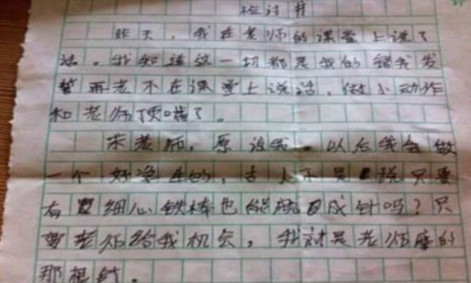 检讨书
昨天，我在老师的课堂上说了
话。我知道这一切都是我的错我发
誓再老不在课堂上说话，做小动作
和老师顶嘴了。
宋老师，原谅我。以后我会做
一个好学生的，古人不是说只要
有恒细心铁棒也能磨成针吗？只
要老师给我机会，我就是老师磨的
那根针。